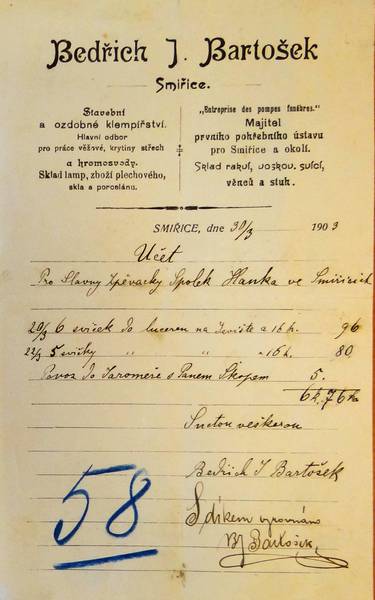 Bedřich J. Bartošek
Smiřice.
Stavební
a ozdobné klempířství.
Hlavní odbor
pro práce věžové, krytiny střech
a hromosvody.
Sklad lamp, zboží plechového,
skla a porcelánu.
„Entreprise des pompes funèbres.“
Majitel
prvního pohřebního ústavu
pro Smiřice a okolí.
Sklad rakví, voskov. svící,
věnců a stuh.
SMIŘICE, dne 30/3 1903
Účet
Pro Slavný Zpěvácký Spolek Hanka ve Smiřicích
20/3 6 svíček do luceren na a 16 h. 96
22/3 5 svíčky „ „ - 16 h. 80
Povoz do Jaroměře s Panem Škopem 5.
6 k. 76 ha
Suctou veškerou
Bedřich J Bartošek
S díkem vyrovnáno
BJ Bartošek
58